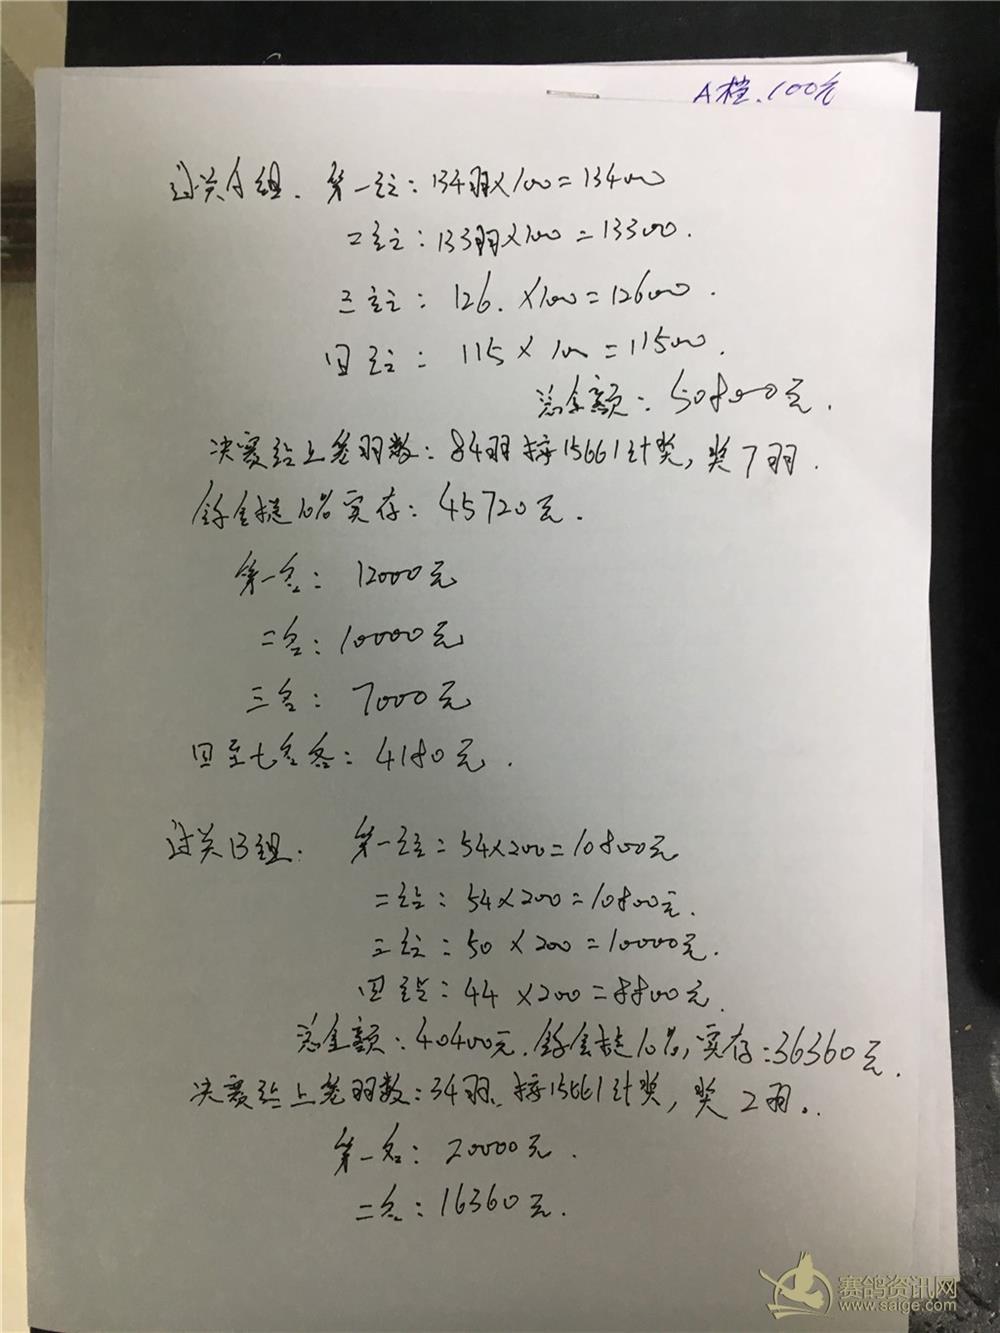 A档.100元
过关A组. 第一站:134羽×100=13400
二站:133羽×100=13300.
三站:126.×100=12600.
四站:115×100=11500.
总金额:50800元.
决赛站上笼羽数:84羽 按15661计奖,奖7羽.
余金提10%实存:45720元.
第一名:12000元
二名:10000元
三名:7000元
四至七名各:4180元.
过关B组. 第一站:54×200=10800元
二站:54×200=10800元.
三站:50×200=10000元.
四站:44×200=8800元.
总金额:40400元.余金提10%,实存:36360元.
决赛站上笼羽数:34羽.按15661计奖,奖2羽..
第一名:20000元.
二名:16360元.
赛鸽资讯网
www.saige.com